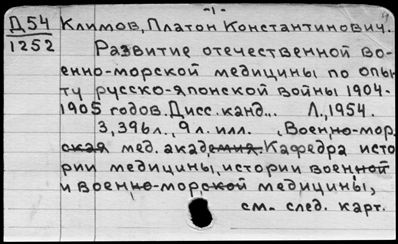 -1-
Д54 Климов, Платон Константинович.
1252
Развитие отечественной во-
енно-морской медицины по опы-
ту русско-японской войны 1904-
1905 годов. Дисс. канд... Л., 1954.
3,396л., 9 л. илл. (Военно-мор.
ская мед. академия. Кафедра исто
рии медицины, истории военной
и военно-морской медицины,
см. след. карт.